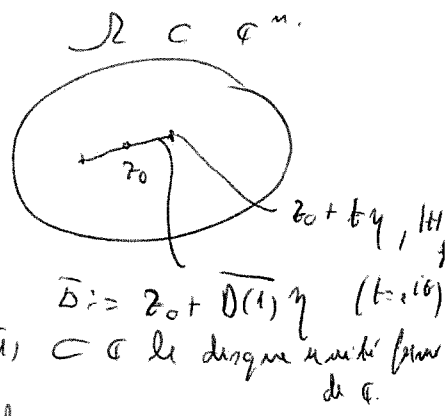 Ω ⊂ ℂⁿ.
z₀
z₀ + tη, |t|
D̄ := z₀ + \overline{D(1)} η (t = e^{iθ})
1) ⊂ ℂ le disque unité fermé
de ℂ.